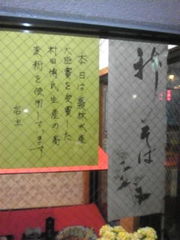 本日は農林水産
大臣賞を受賞した
村田博氏生産の蕎
麦粉を使用してます
店主
新そば